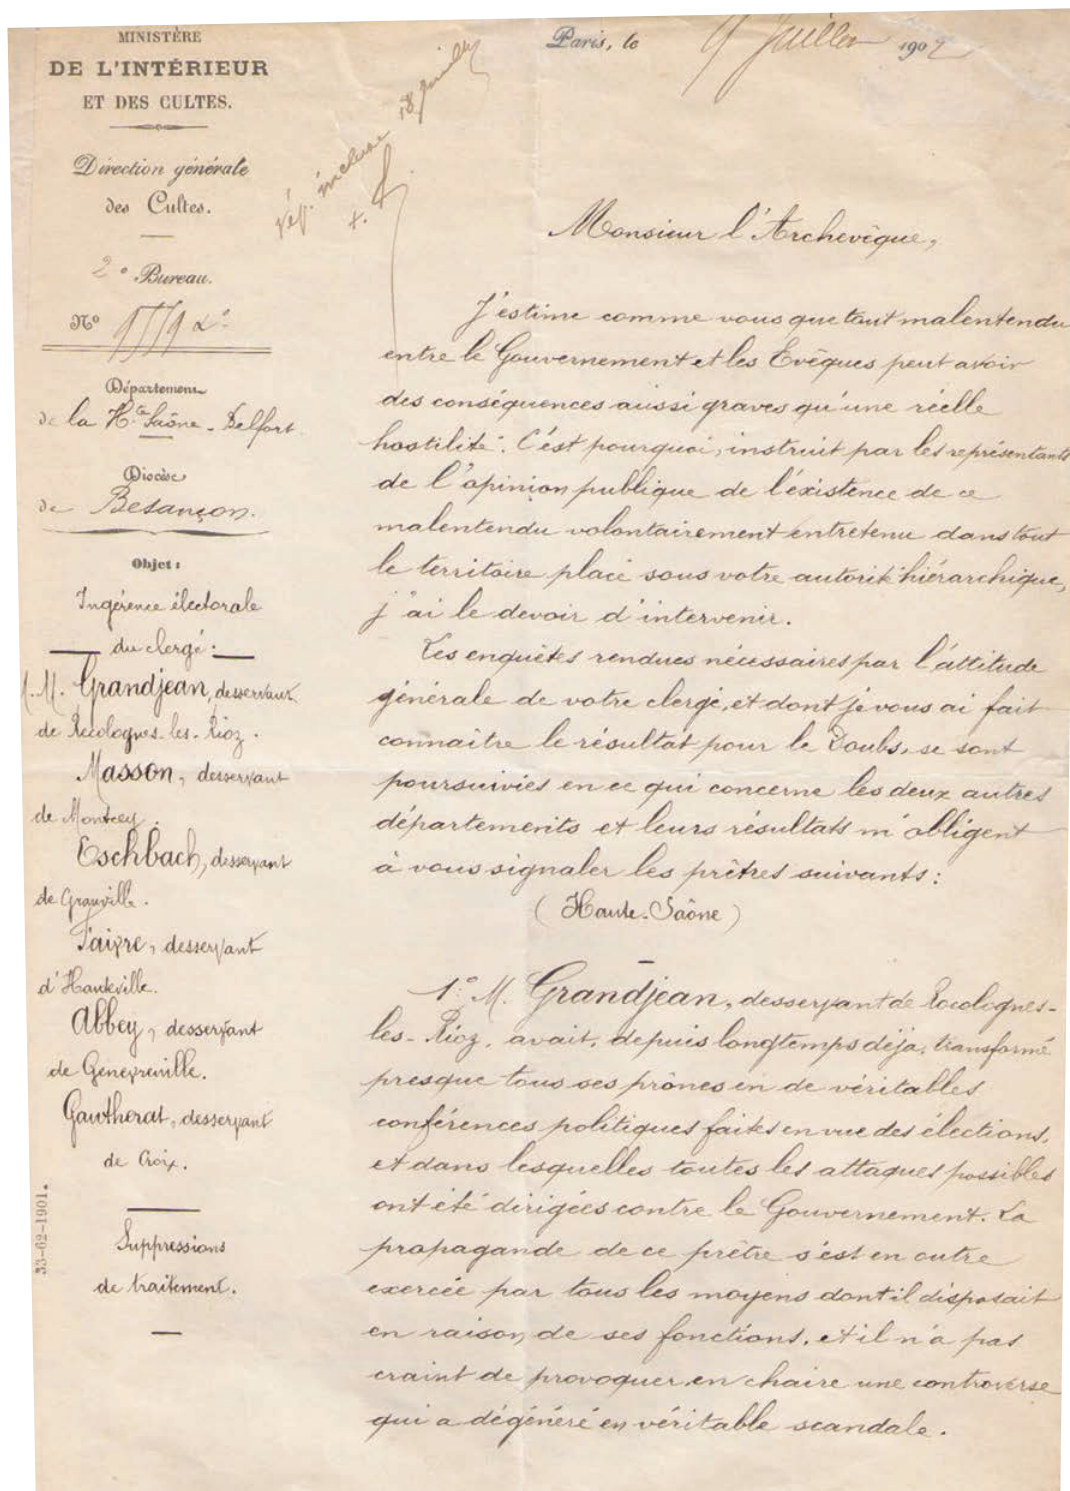 MINISTÈRE
DE L'INTÉRIEUR
ET DES CULTES.
Direction générale
des Cultes.
2e Bureau.
No
Département
de la Hte Saône - Belfort
Diocèse
de Besançon.
Objet :
Ingérence électorale
du clergé :
M.M. Grandjean, desservant
de Recologne-les-Rioz.
Masson, desservant
de Montcey.
Eschbach, desservant
de
Faivre, desservant
d'Hauteville.
Abbey, desservant
de Genevreuille.
Gautherat, desservant
de Croix.
Suppressions
de traitement.
33-62-1901.
Paris, le 9 Juillet 1902
rép. incluse 18 Juillet
Monsieur l'Archevêque,
J'estime comme vous que tout malentendu
entre le Gouvernement et les Evêques peut avoir
des conséquences aussi graves qu'une réelle
hostilité. C'est pourquoi, instruit par les représentants
de l'opinion publique de l'existence de ce
malentendu volontairement entretenu dans tout
le territoire placé sous votre autorité hiérarchique,
j'ai le devoir d'intervenir.
Les enquêtes rendues nécessaires par l'attitude
générale de votre clergé, et dont je vous ai fait
connaître le résultat pour le Doubs, se sont
poursuivies en ce qui concerne les deux autres
départements et leurs résultats m'obligent
à vous signaler les prêtres suivants :
(Haute-Saône)
1° M. Grandjean, desservant de Recologne-
les-Rioz, avait, depuis longtemps déja, transformé
presque tous ses prônes en de véritables
conférences politiques faites en vue des élections,
et dans lesquelles toutes les attaques possibles
ont été dirigées contre le Gouvernement. La
propagande de ce prêtre s'est en outre
exercée par tous les moyens dont il disposait
en raison de ses fonctions, et il n'a pas
craint de provoquer en chaire une controverse
qui a dégénéré en véritable scandale.